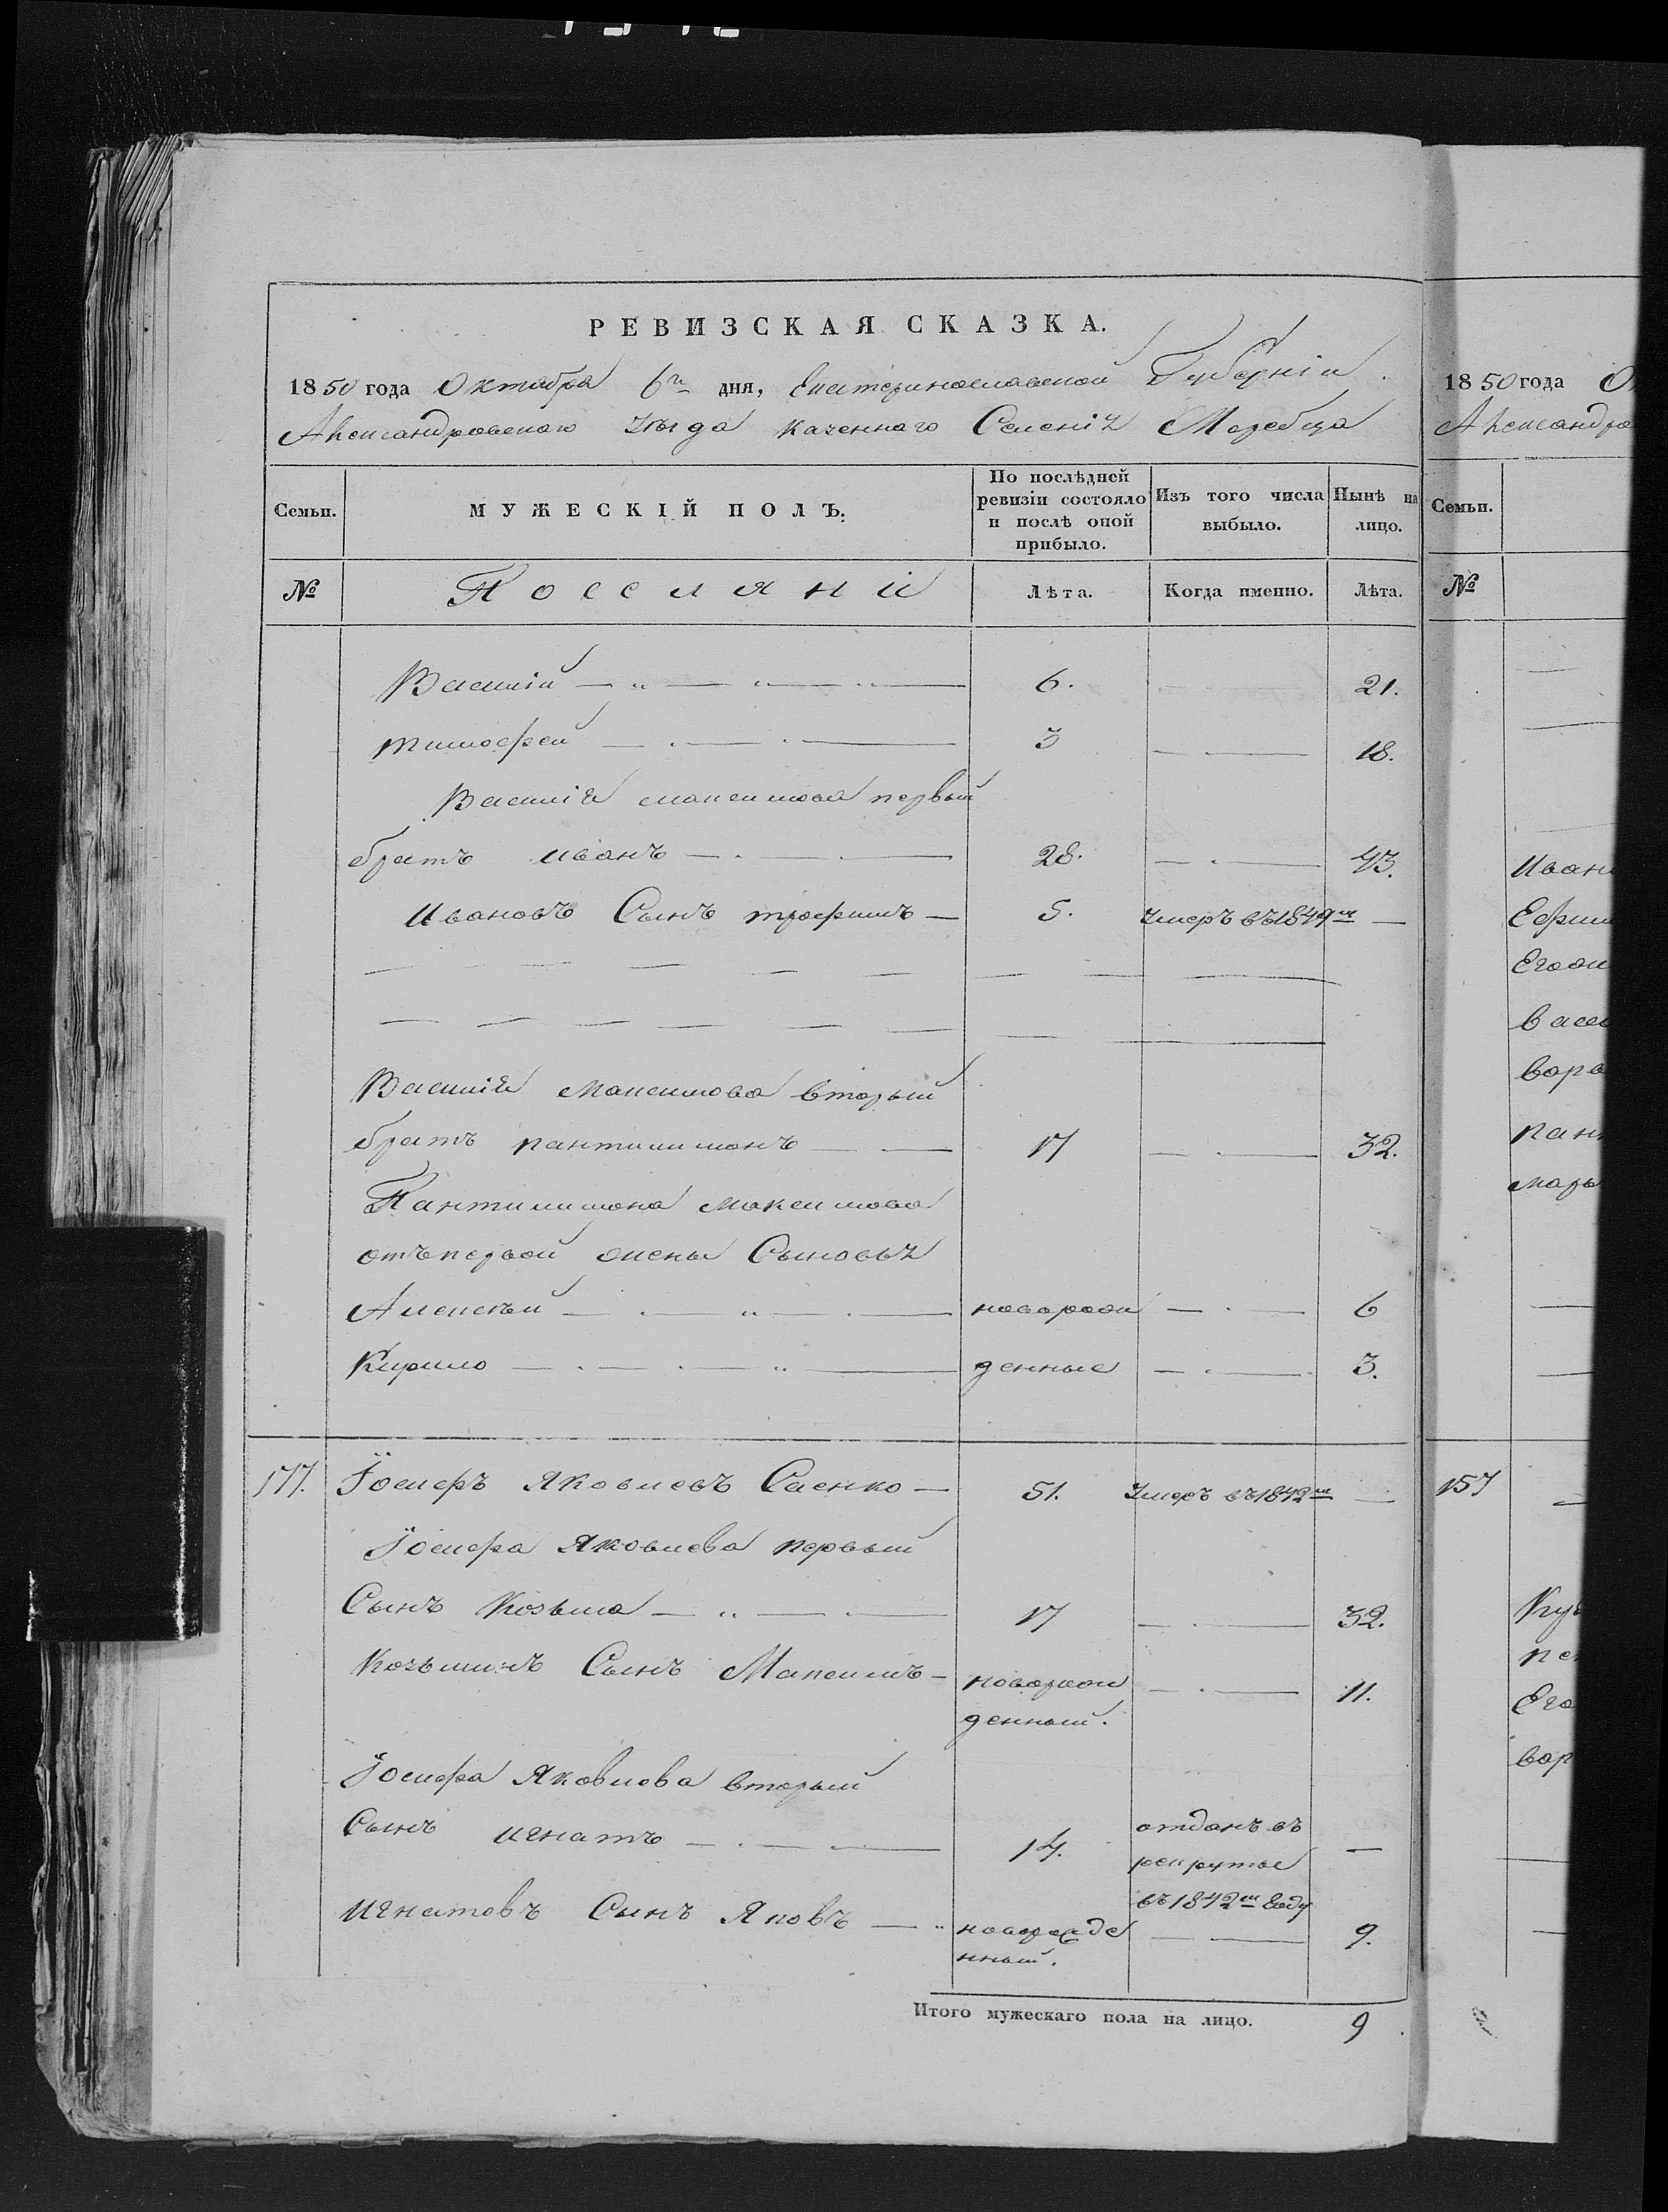 РЕВИЗСКАЯ СКАЗКА.
1850 года Октября 6го дня, Екатеринославской Губерніи
Александровскаго уѣзда казеннаго Селенія Жеребца
Семьи. МУЖЕСКІЙ ПОЛЪ. По послѣдней ревизіи состояло и послѣ оной прибыло. Изъ того числа выбыло. Нынѣ на лицо.
№ Поселяни Лѣта. Когда именно. Лѣта.
Василій 6. 21.
тимофей 3 18.
Василія максимова первый
братъ иванъ 28. 43.
Ивановъ Сынъ трофимъ 5. умеръ въ 1849м
Василія Максимова вторый
братъ пантилимонъ 17 32.
Пантилимона Максимова
отъ первой жены Сыновья
Алексѣй новорож 6
Кирило денные 3.
177. Іосифъ Яковлевъ Саенко 51. умеръ въ 1842м
Іосифа Яковлева первый
Сынъ Козьма 17 32.
Козьминъ Сынъ Максимъ новорож 11.
денный.
Іосифа Яковлева вторый
Сынъ игнатъ 14. отданъ въ
рекруты
въ 1842м году
Игнатовъ Сынъ Яковъ новорожде 9.
нный.
Итого мужескаго пола на лицо. 9
1850 года
Александро
Семьи.
№
Иван
Ефим
Его
васи
вара
пан
марь
157
Его
вар